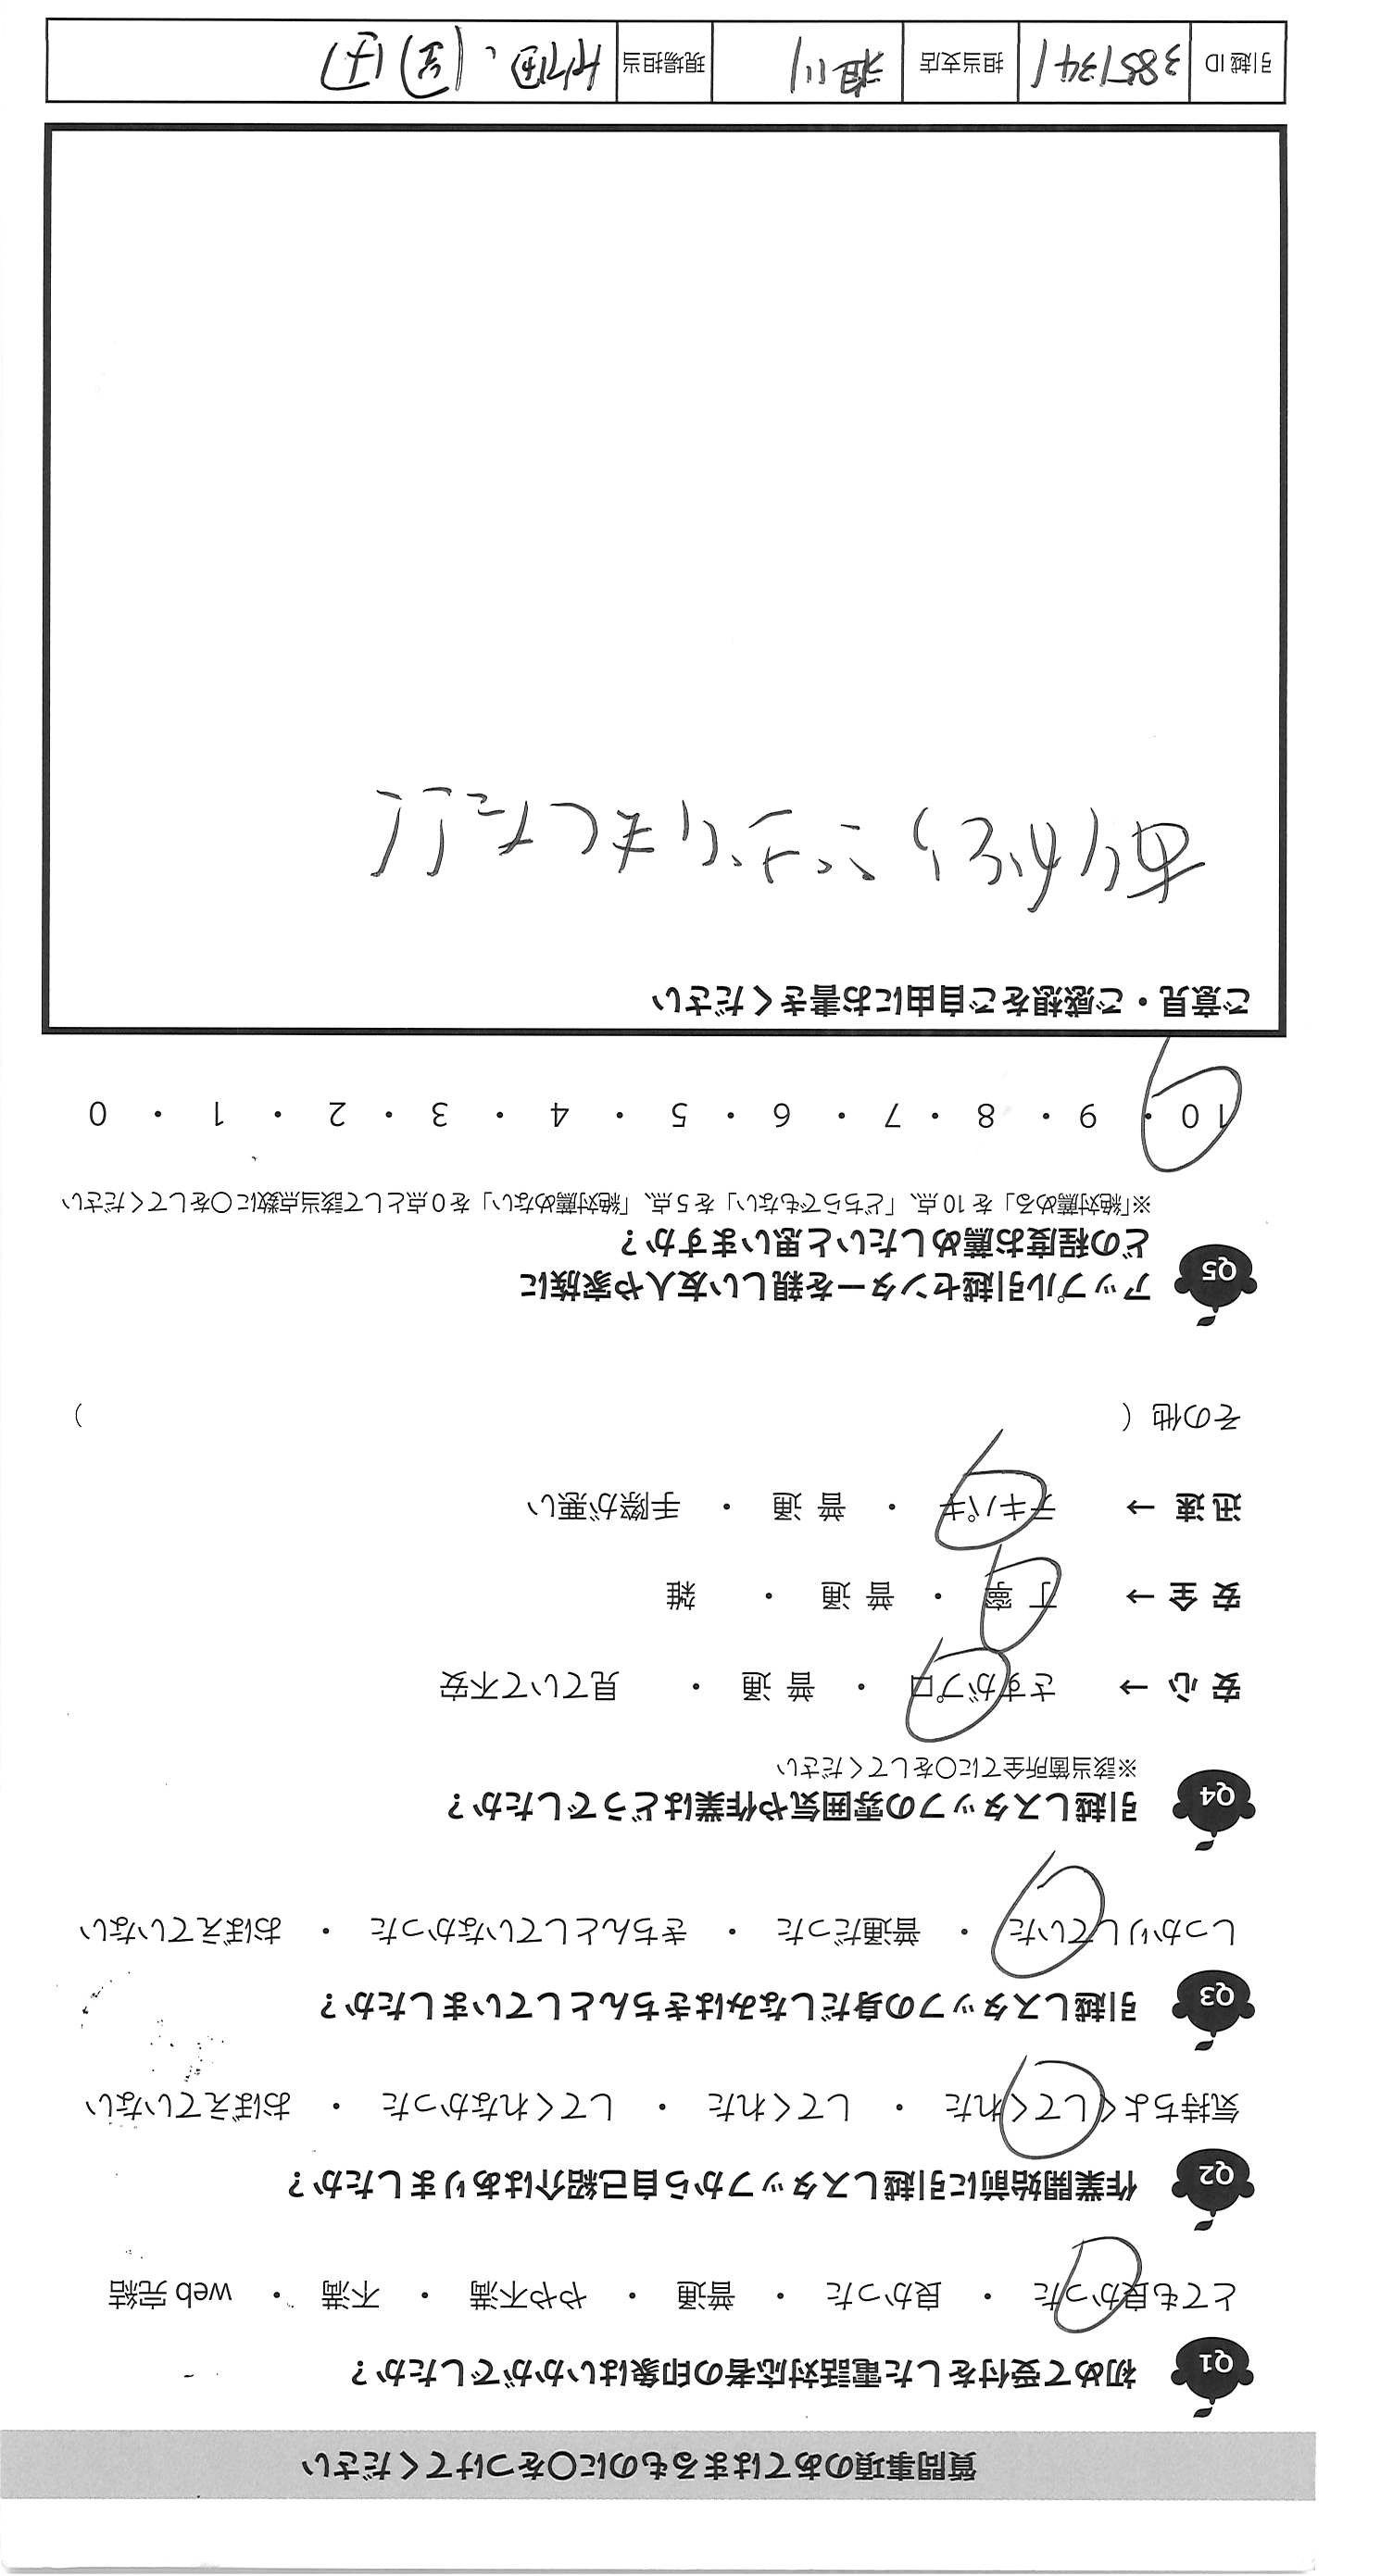 質問事項のあてはまるものに〇をつけてください
Q1 初めて受付をした電話対応者の印象はいかがでしたか？
とても良かった ・ 良かった ・ 普通 ・ やや不満 ・ 不満 ・ web 完結
Q2 作業開始前に引越しスタッフから自己紹介はありましたか？
気持ちよくしてくれた ・ してくれた ・ してくれなかった ・ おぼえていない
Q3 引越しスタッフの身だしなみはきちんとしていましたか？
しっかりしていた ・ 普通だった ・ きちんとしていなかった ・ おぼえていない
Q4 引越しスタッフの雰囲気や作業はどうでしたか？
※該当箇所全てに〇をしてください
安心→ さすがプロ ・ 普通 ・ 見ていて不安
安全→ 丁寧 ・ 普通 ・ 雑
迅速→ テキパキ ・ 普通 ・ 手際が悪い
その他（ ）
Q5 アップル引越センターを親しい友人や家族に
どの程度お薦めしたいと思いますか？
※「絶対薦める」を10点、「どちらでもない」を5点、「絶対薦めない」を0点として該当点数に〇をしてください
10 ・ 9 ・ 8 ・ 7 ・ 6 ・ 5 ・ 4 ・ 3 ・ 2 ・ 1 ・ 0
ご意見・ご感想をご自由にお書きください
ありがとうございました!!
引越ID 3851341 担当支店 旭川 現場担当